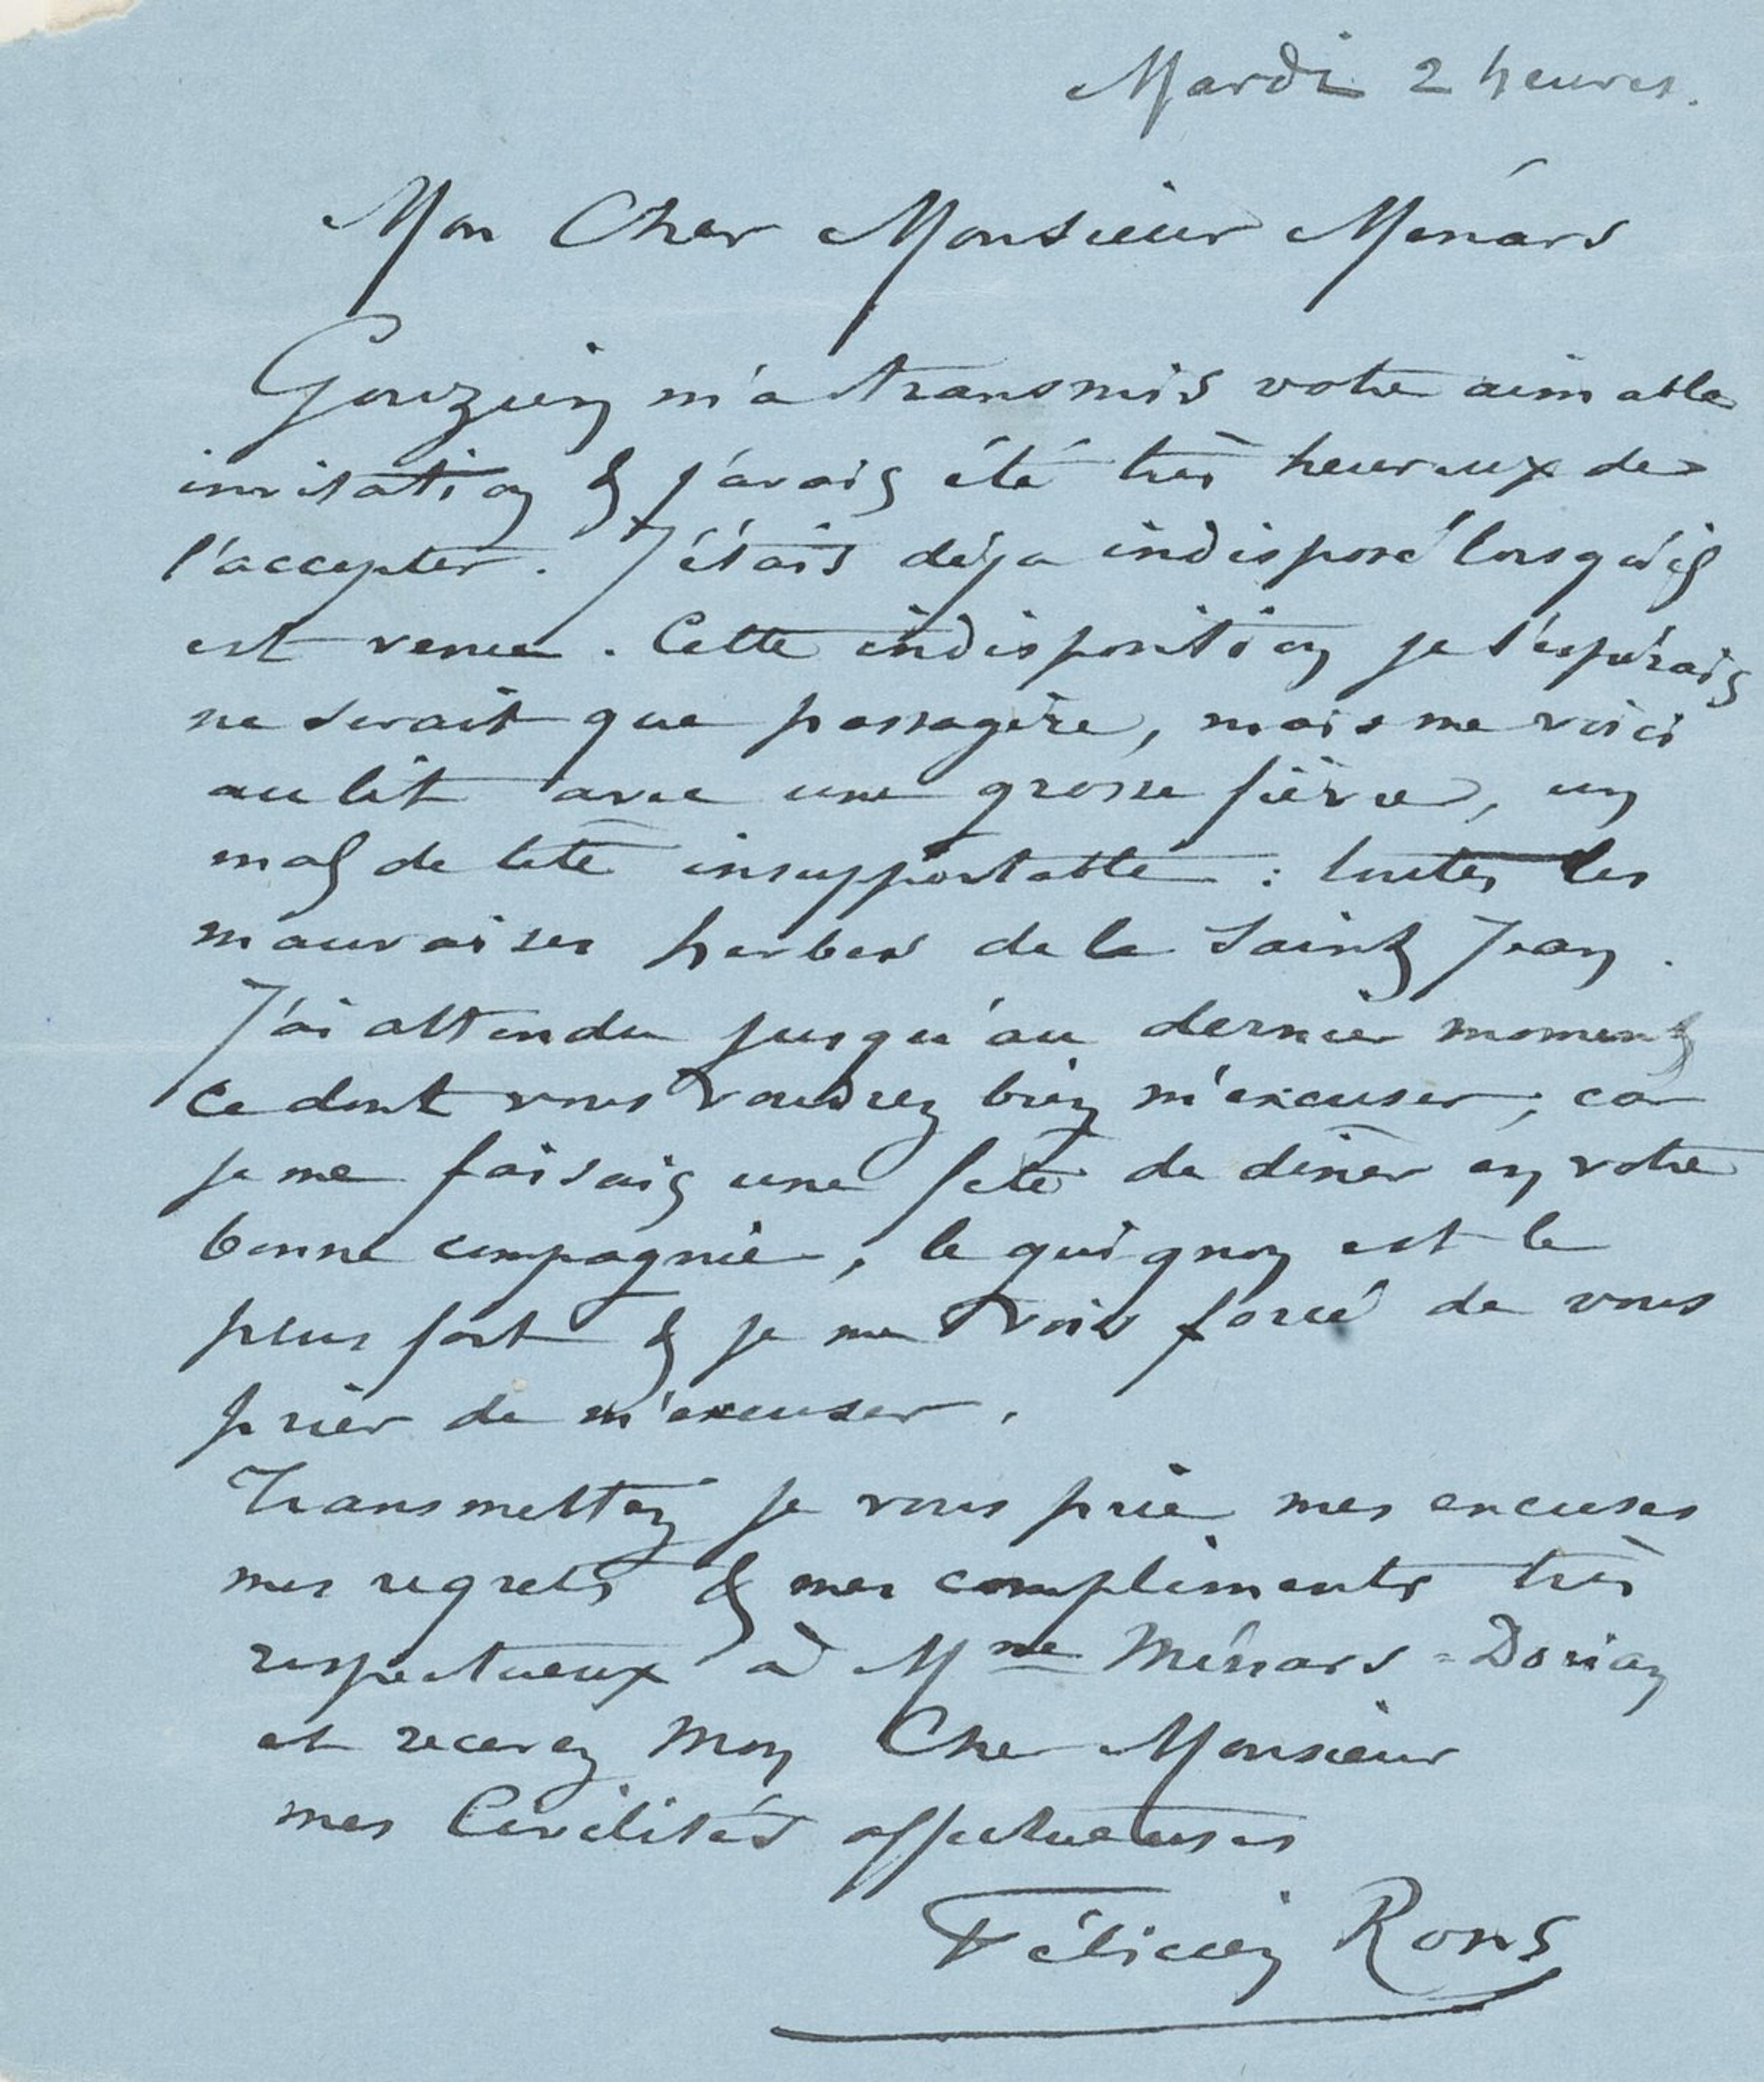 Mardi 2 heures.
Mon Cher Monsieur Ménard
Gouzien m'a transmis votre aimable
invitation & j'avais été très heureux de
l'accepter. J'étais déja indisposé lorsqu'il
est venu. Cette indisposition je l'espérais
ne serait que passagère, mais me voici
au lit avec une grosse fièvre, un
mal de tête insupportable : toutes les
mauvaises herbes de la Saint Jean.
J'ai attendu jusqu'au dernier moment
ce dont vous voudrez bien m'excuser, car
je me faisais une fête de dîner en votre
bonne compagnie, le guignon est le
plus fort & je me vois forcé de vous
prier de m'excuser.
Transmettez je vous prie mes excuses
mes regrets & mes compliments très
respectueux à Mme Ménard-Dorian
et recevez Mon Cher Monsieur
mes Civilités affectueuses
Félicien Rops